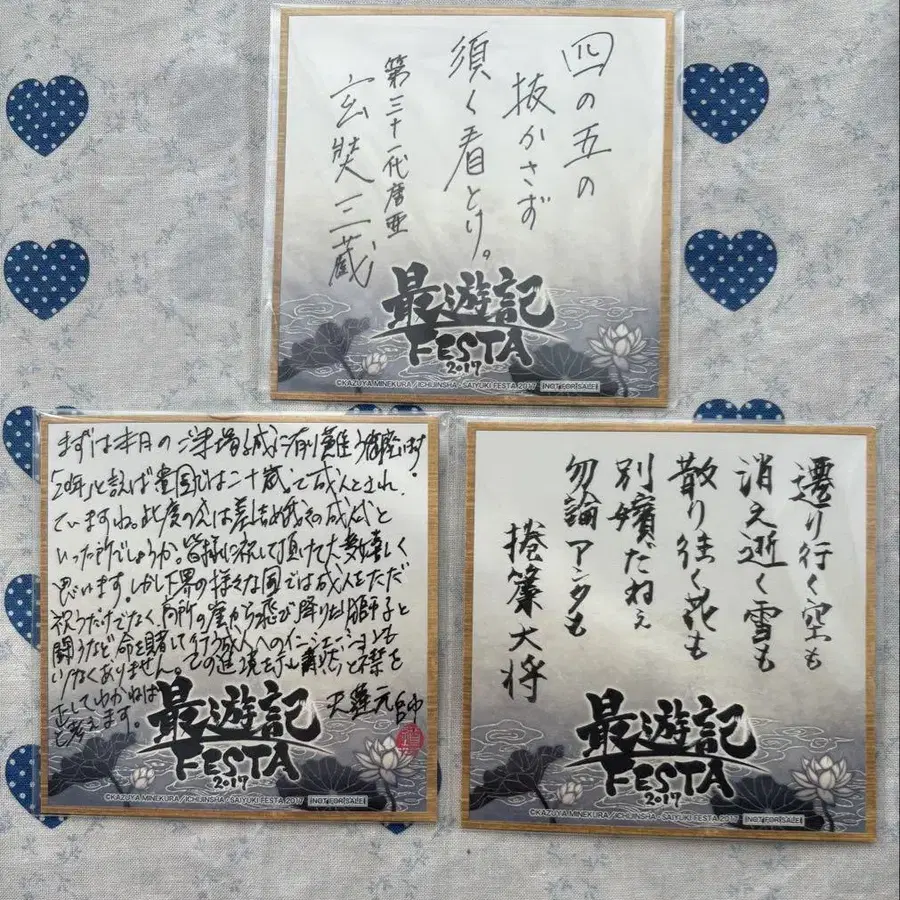 四の五の
抜かさず
須く看とけ。
第三十一代唐亜
玄奘三蔵
最遊記
FESTA
2017
©KAZUYA MINEKURA/ICHIJINSHA・SAIYUKI FESTA 2017 NOT FOR SALE
まずは本日のご来場誠に有り難う御座います
「20年」と言えば 国では二十歳で成人とされ
ていますね。此度の会は 成人式と
いった所でしょうか。皆様に祝して頂けて大 嬉しく
思います。しかし下界の様々な国では成人をただ
祝うだけでなく、高所の崖から飛び降りたり獅子と
闘うなど命を賭して行う成人へのイニシエーションも
少なくありません。 と襟を
正してゆかねば
と考えます。
天蓬元帥
最遊記
FESTA
2017
©KAZUYA MINEKURA/ICHIJINSHA・SAIYUKI FESTA 2017 NOT FOR SALE
遷り行く空も
消え逝く雪も
散り往く花も
別嬪だねェ
勿論アンタも
捲簾大将
最遊記
FESTA
2017
©KAZUYA MINEKURA/ICHIJINSHA・SAIYUKI FESTA 2017 NOT FOR SALE